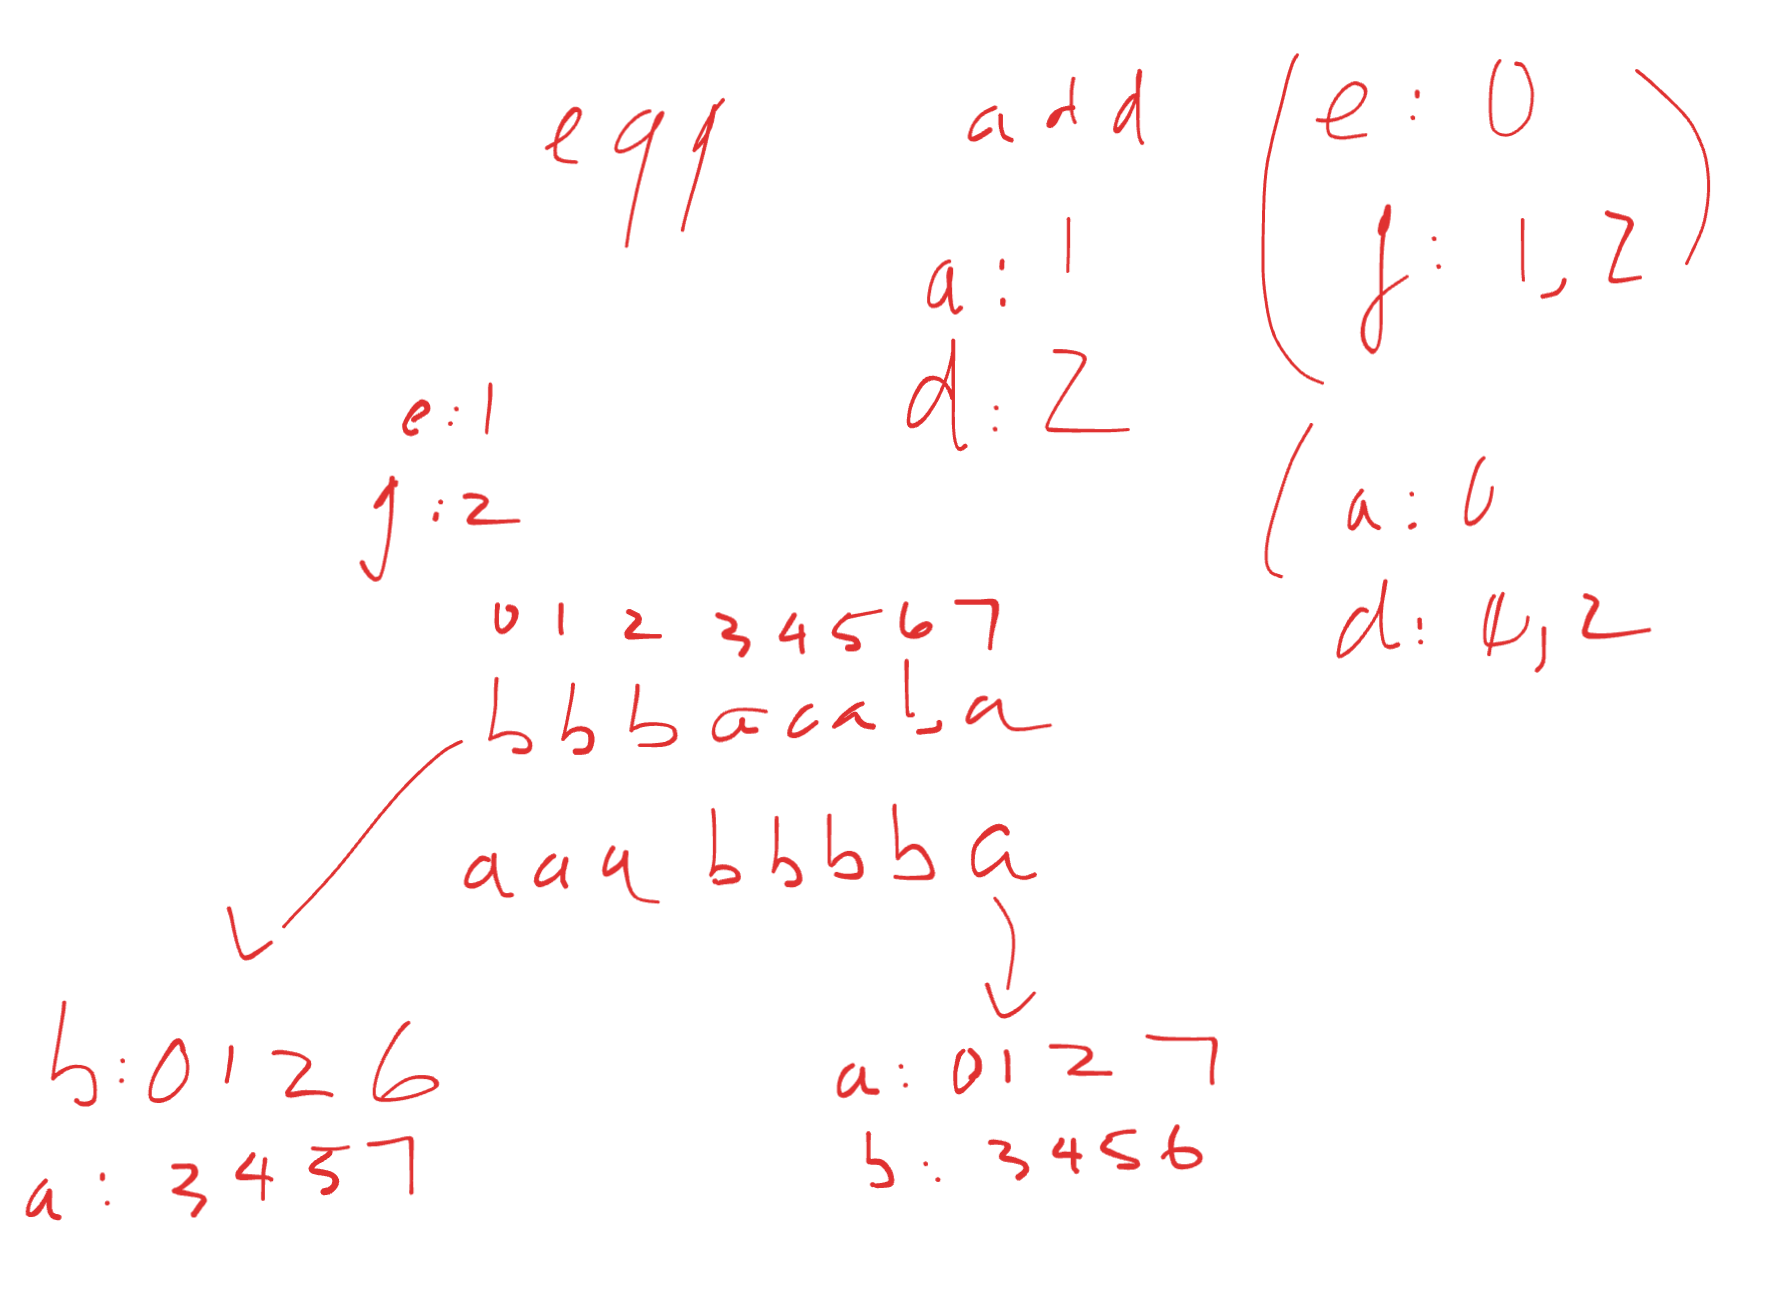 egg add
a: 1
d: 2
e: 1
g: 2
e: 0
g: 1, 2
a: 0
d: 1, 2
0 1 2 3 4 5 6 7
b b b a c a b a
a a a b b b b a
b: 0 1 2 6
a: 3 4 5 7
a: 0 1 2 7
b: 3 4 5 6